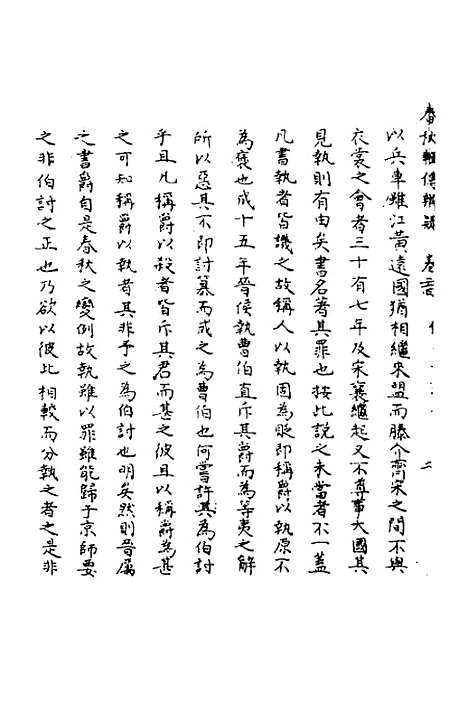 春秋輯傳辨疑 卷三十
以兵車雖江黃遠國猶相繼來盟而滕介齊宋之間不與
衣裳之會者三十有七年及宋襄繼起又不尊事大國其
見執則有由矣書名著其罪也按此說之未當者不一蓋
凡書執者皆譏之故稱人以執固為貶即稱爵以執原不
為褒也成十五年晉侯執曹伯直斥其爵而為等夷之解
所以惡其不即討篡而戎之為曹伯也何嘗許其為伯討
乎且凡稱爵以殺者皆斥其君而甚之彼且以稱爵為甚
之可知稱爵以執者其非予之為伯討也明矣然則晉厲
之書爵自是春秋之變例故執雖以罪雖能歸于京師要
之非伯討之正也乃欲以彼此相較而分執之者之是非